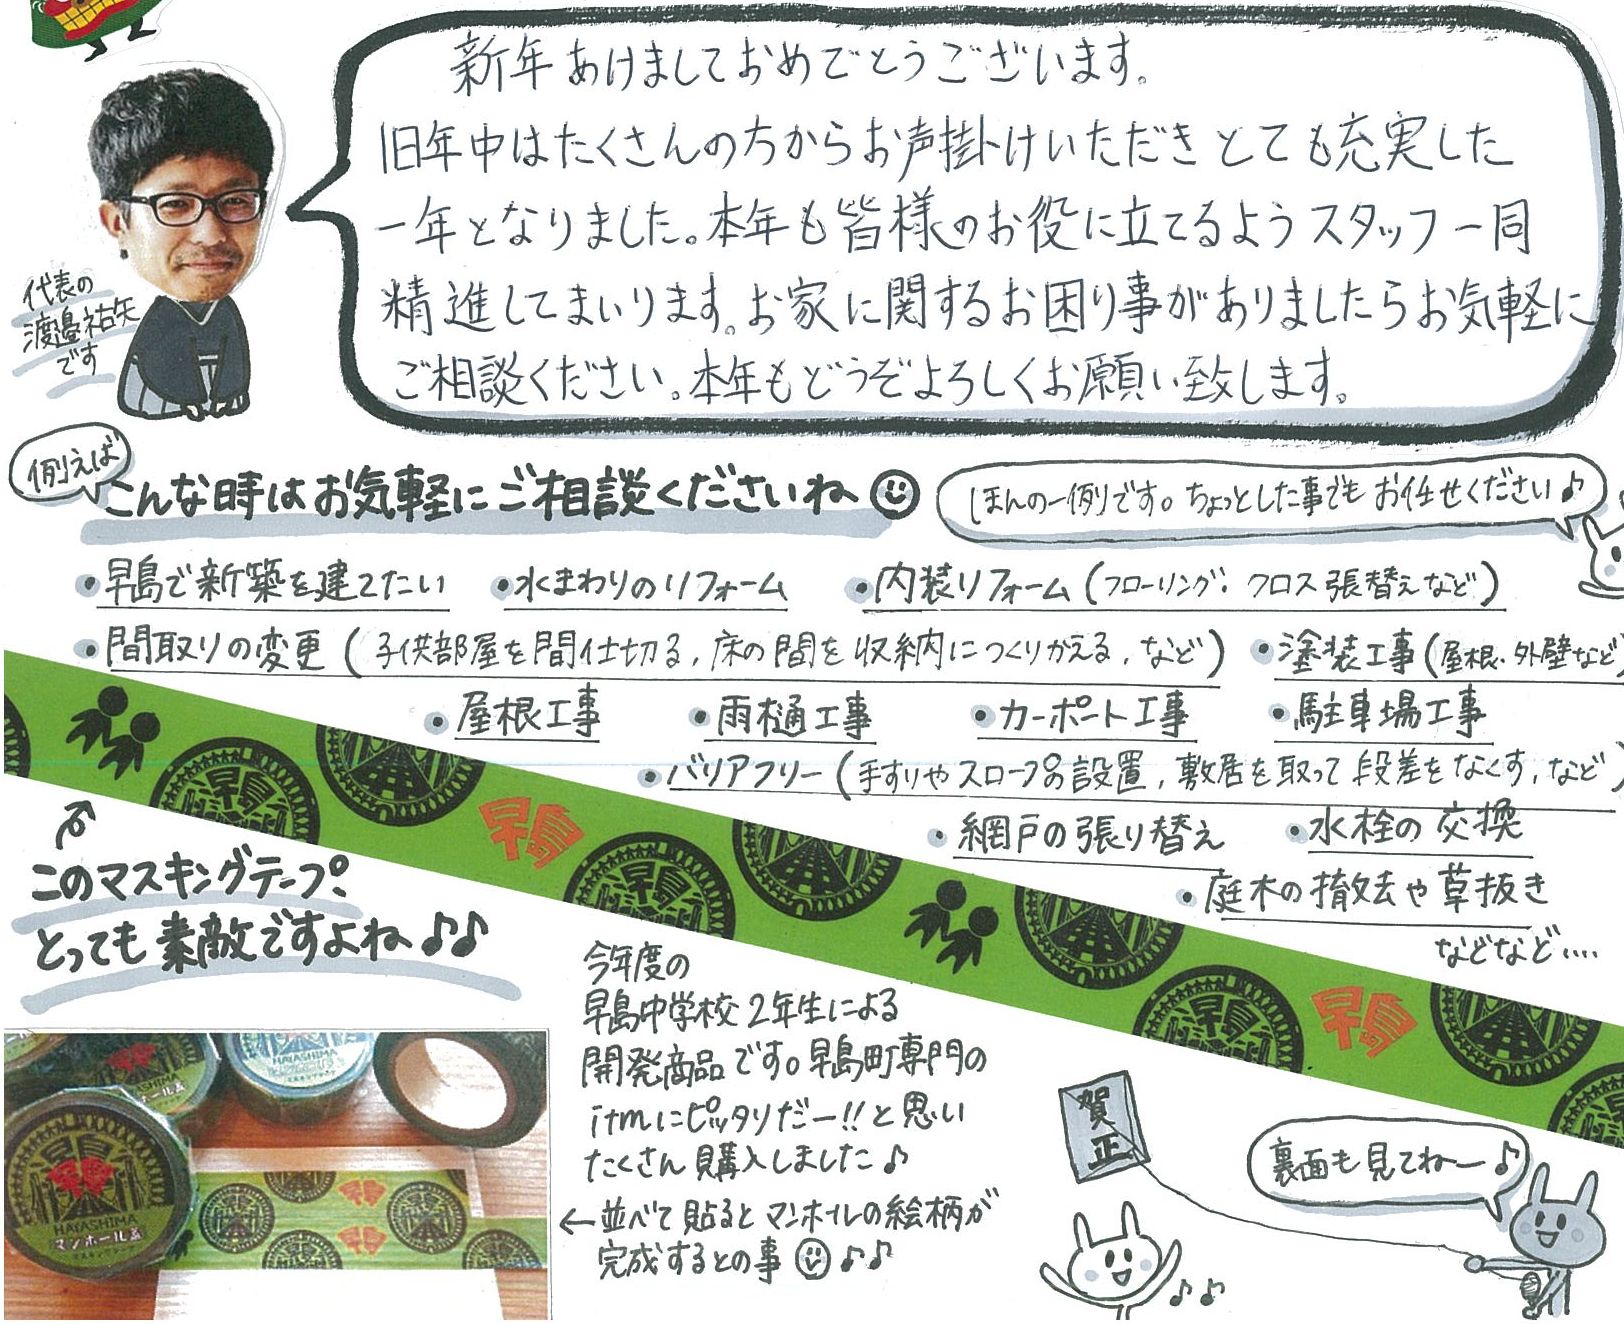 新年あけましておめでとうございます。
旧年中はたくさんの方からお声掛けいただきとても充実した
一年となりました。本年も皆様のお役に立てるようスタッフ一同
精進してまいります。お家に関するお困り事がありましたらお気軽に
ご相談ください。本年もどうぞよろしくお願い致します。
代表の
渡邉祐矢
です
例えば
こんな時はお気軽にご相談くださいね
ほんの一例です。ちょっとした事でもお任せください♪
•早島で新築を建てたい •水まわりのリフォーム •内装リフォーム(フローリング、クロス張替えなど)
•間取りの変更(子供部屋を間仕切る,床の間を収納につくりかえる,など) •塗装工事(屋根、外壁など)
•屋根工事 •雨樋工事 •カーポート工事 •駐車場工事
•バリアフリー(手すりやスロープの設置,敷居を取って段差をなくす,など)
•網戸の張り替え •水栓の交換
•庭木の撤去や草抜き
などなど‥‥
早島
早島
早島
早島
早島
このマスキングテープ、
とっても素敵ですよね♪♪
今年度の
早島中学校2年生による
開発商品です。早島町専門の
itmにピッタリだー!!と思い
たくさん購入しました♪
←並べて貼るとマンホールの絵柄が
完成するとの事♪♪
早島
HAYASHIMA
マンホール蓋
HAYASHIMA
HAYASHIMA
賀正
裏面も見てねー♪
♪♪